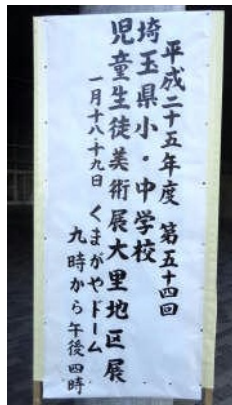 平成二十五年度 第五十四回
埼玉県小・中学校
児童生徒美術展大里地区展
一月十八・十九日 くまがやドーム
九時から午後四時